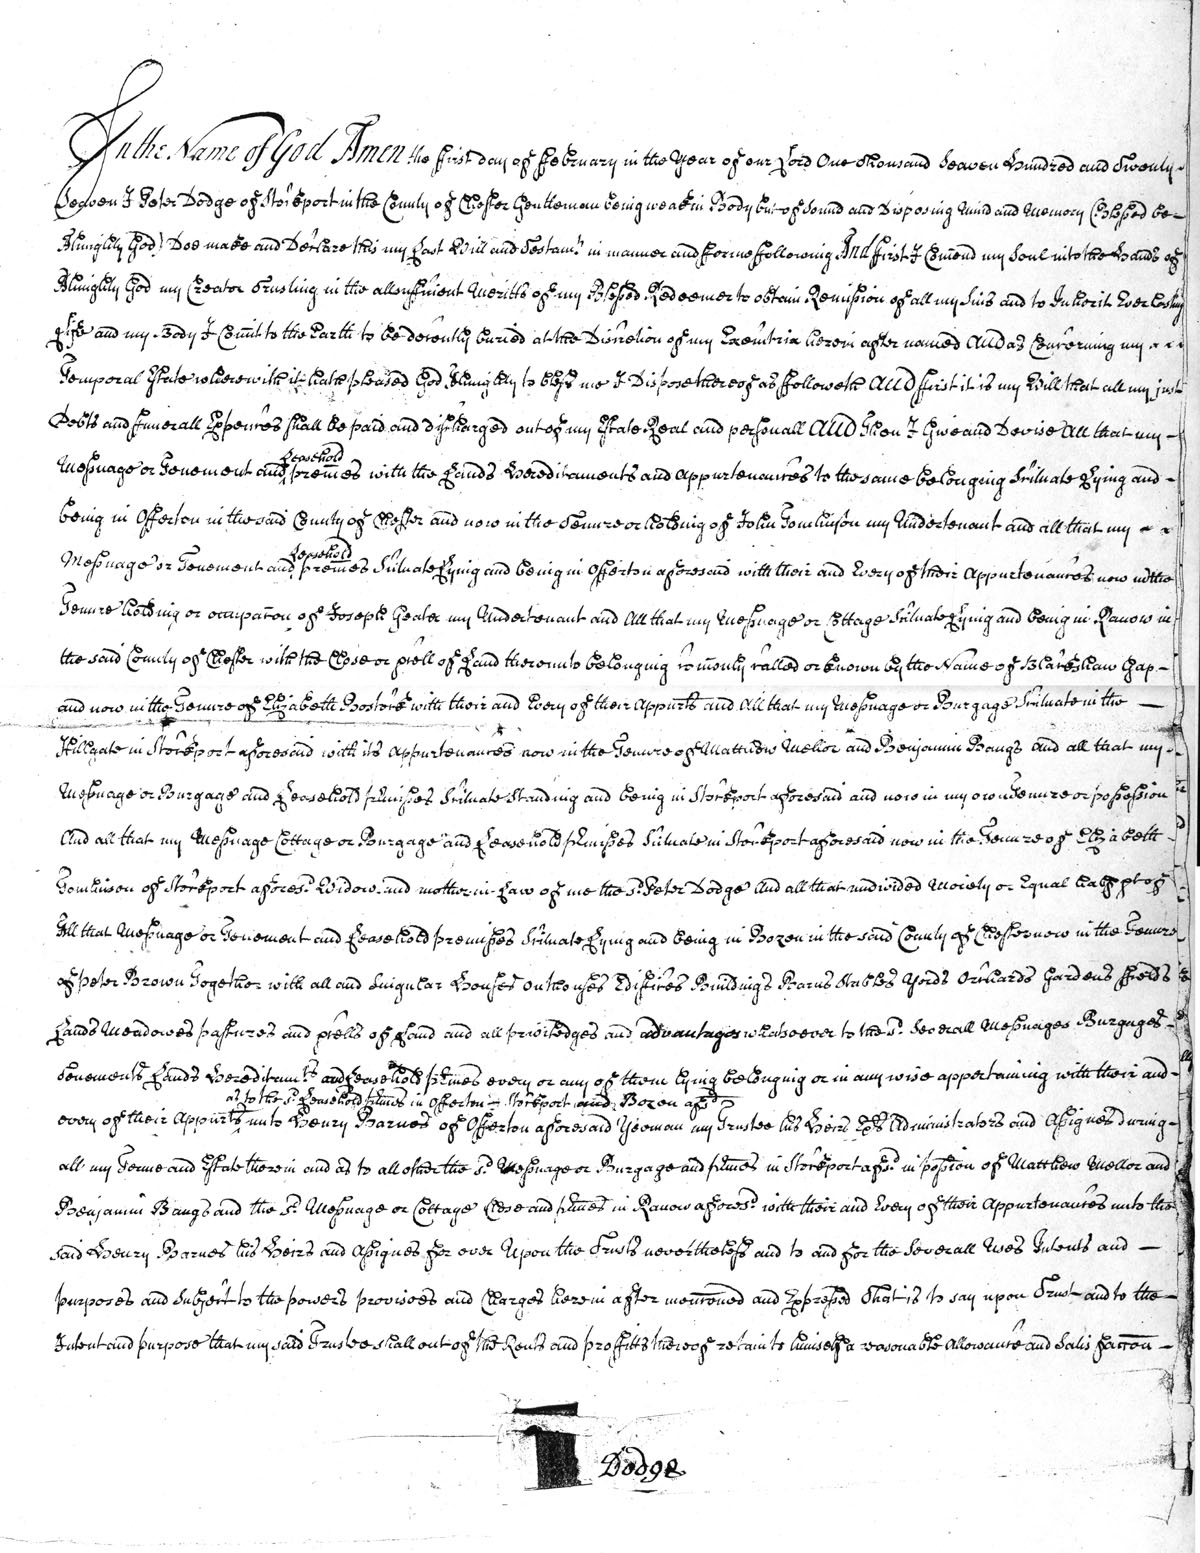 In the Name of God Amen the first day of ffebruary in the Year of our Lord One thousand Seaven Hundred and Twenty
Seaven I Peter Dodge of Stockport in the County of Chester Gentleman being weake in Body but of Sound and Disposing Mind and Memory (Blessed be
Almighty God) Doe make and Declare this my Last Will and Testamt in manner and forme following And first I Comend my Soul into the Hands of
Almighty God my Creator Trusting in the allsufficient Meritts of my Blessed Redeemer to obtain Remission of all my Sins and to Inherit Everlasting
Life and my Body I Comit to the Earth to be decently buried at the Discretion of my Executrix herein after named And as Concerning my
Temporal Estate wherewith it hath pleased God Almighty to bless me I Dispose thereof as followeth And first it is my Will that all my just
Debts and funerall Expences shall be paid and discharged out of my Estate Real and personall And Then I Give and Devise All that my
Messuage or Tenement and Leasehold premes with the Lands Hereditaments and Appurtenances to the same belonging Scituate Lying and
being in Offerton in the said County of Chester and now in the Tenure or holding of John Tomlinson my Undertenant and all that my
Messuage or Tenement and Leasehold premes Scituate Lying and being in Offerton aforesaid with their and Every of their Appurtenances now in the
Tenure holding or occupacon of Joseph Geater my Undertenant and All that my Messuage or Cottage Scituate Lying and being in Ranow in
the said County of Chester with the Close or pcell of Land thereunto belonging comonly called or known by the Name of Blackshaw Gap
and now in the Tenure of Elizabeth Bostock with their and Every of their Appurts and All that my Messuage or Burgage Scituate in the
Hillgate in Stockport aforesaid with its Appurtenances now in the Tenure of Matthew Mellor and Benjamin Bangs and all that my
Messuage or Burgage and Leasehold pmisses Scituate Standing and being in Stockport aforesaid and now in my own Tenure or possession
And all that my Messuage Cottage or Burgage and Leasehold pmisses Scituate in Stockport aforesaid now in the Tenure of Elizabeth
Tomlinson of Stockport aforesd Widow and mother-in-Law of me the sd Peter Dodge And all that undivided Moiety or Equal half pt of
All that Messuage or Tenement and Leasehold premisses Scituate Lying and being in Bozen in the said County of Chester now in the Tenure
of Peter Brown Together with all and Singular Houses Outhouses Edifices Buildings Barns Stables Yards Orchards Gardens ffields
Lands Meadowes pastures and pcells of Land and all priviledges and advantages whatsoever to the sd Severall Messuages Burgages
Tenements Lands Hereditamts and Leasehold pmes every or any of them lying belonging or in any wise appertaining with their and
as to the sd Leasehold pmes in Offerton Stockport and Bozen aforsd
every of their Appurts unto Henry Barnes of Offerton aforesaid Yeoman my Trustee his Heirs Exrs Administrators and Assignes during
all my Terme and Estate therein and as to all other the sd Messuage or Burgage and pmes in Stockport aforsd in possion of Matthew Mellor and
Benjamin Bangs and the sd Messuage or Cottage Close and pmes in Ranow aforesd with their and Every of their Appurtenances unto the
said Henry Barnes his Heirs and Assignes for ever Upon the Trusts nevertheless and to and for the Severall Uses Intents and
purposes and Subject to the powers provisoes and Charges herein after mencioned and Expressed That is to say upon Trust and to the
Intent and purpose that my said Trustee shall out of the Rents and proffitts thereof retain to himself a reasonable Allowance and Satisfaccon
Dodge